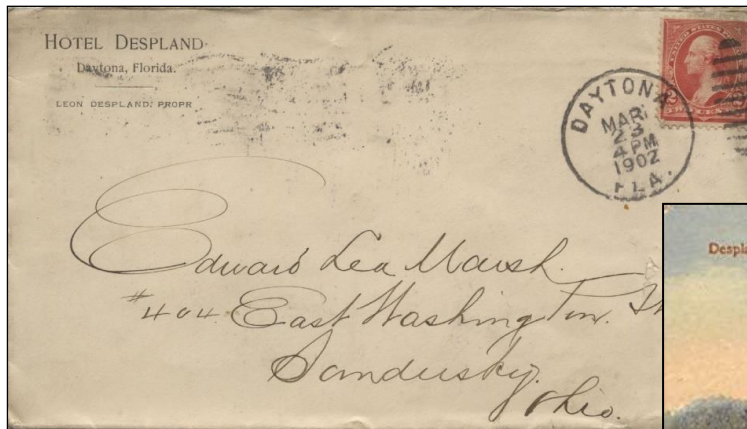 HOTEL DESPLAND
Daytona, Florida.
LEON DESPLAND, PROPR
DAYTONA
MAR
23
4 PM
1902
FLA.
Edward Lea Marsh.
#404 East Washington.
Sandusky.
Ohio.